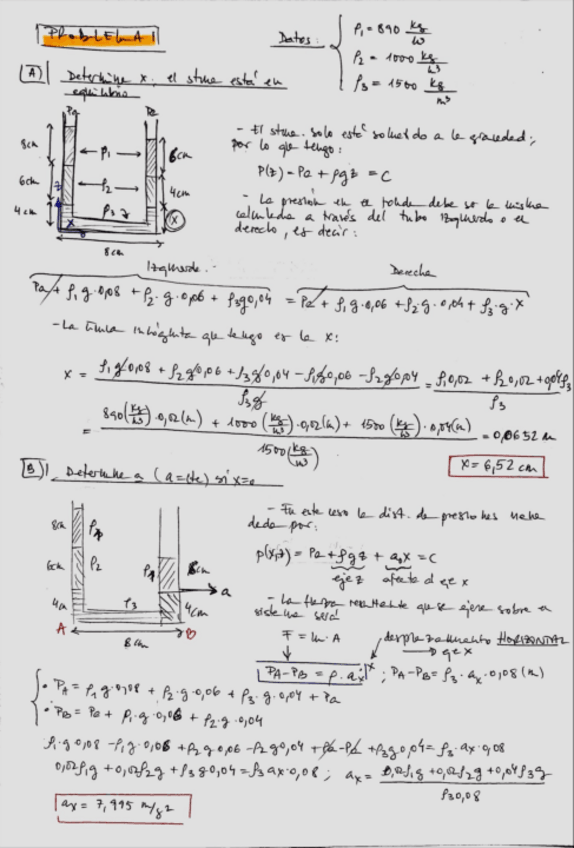 PROBLEMA 1
Datos: ρ₁ = 890 kg/m³
ρ₂ = 1000 kg/m³
ρ₃ = 1500 kg/m³
A) Determine x, el stma está en
equilibrio
Pa Pa
8cm ρ₁ 6cm
6cm ρ₂ 4cm
4cm ρ₃ z x
8cm
- El stma. solo está sometido a la gravedad;
por lo que tengo:
P(z) - Pa + ρgz = C
- La presión en el fondo debe ser la misma
calculada a través del tubo izquierdo o el
derecho, es decir:
Izquierda. Derecha
Pa + ρ₁g·0,08 + ρ₂·g·0,06 + ρ₃g0,04 = Pa + ρ₁·g·0,06 + ρ₂·g·0,04 + ρ₃·g·x
- La única incógnita que tengo es la x:
x = (ρ₁g0,08 + ρ₂g0,06 + ρ₃g0,04 - ρ₁g0,06 - ρ₂g0,04) / ρ₃g = (ρ₁0,02 + ρ₂0,02 + 0,04ρ₃) / ρ₃
= (890(kg/m³)·0,02(m) + 1000(kg/m³)·0,02(m) + 1500(kg/m³)·0,04(m)) / 1500(kg/m³) = 0,0652 m
x = 6,52 cm
B) Determine a (a = cte) si x=0
8cm
6cm ρ₂ 6cm
4cm ρ₃ 4cm a
A 8cm B
- En este caso la dist. de presiones viene
dada por:
p(x,z) = Pa + ρgz + aₓx = C
eje z afecta al eje x
- La fuerza resultante que se ejerce sobre el
sistema será
F = m·A
desplazamiento HORIZONTAL
→ eje x
PA-PB = ρ·aₓ·x ; PA-PB = ρ₃·aₓ·0,08(m)
• PA = ρ₁g·0,08 + ρ₂·g·0,06 + ρ₃·g·0,04 + Pa
• PB = Pa + ρ₁·g·0,06 + ρ₂·g·0,04
ρ₁·g·0,08 - ρ₁g·0,06 + ρ₂g0,06 - ρ₂g0,04 + Pa - Pa + ρ₃g0,04 = ρ₃·aₓ·0,08
0,02ρ₁g + 0,02ρ₂g + ρ₃g0,04 = ρ₃aₓ·0,08 ; aₓ = (0,02ρ₁g + 0,02ρ₂g + 0,04ρ₃g) / ρ₃0,08
aₓ = 7,995 m/s²